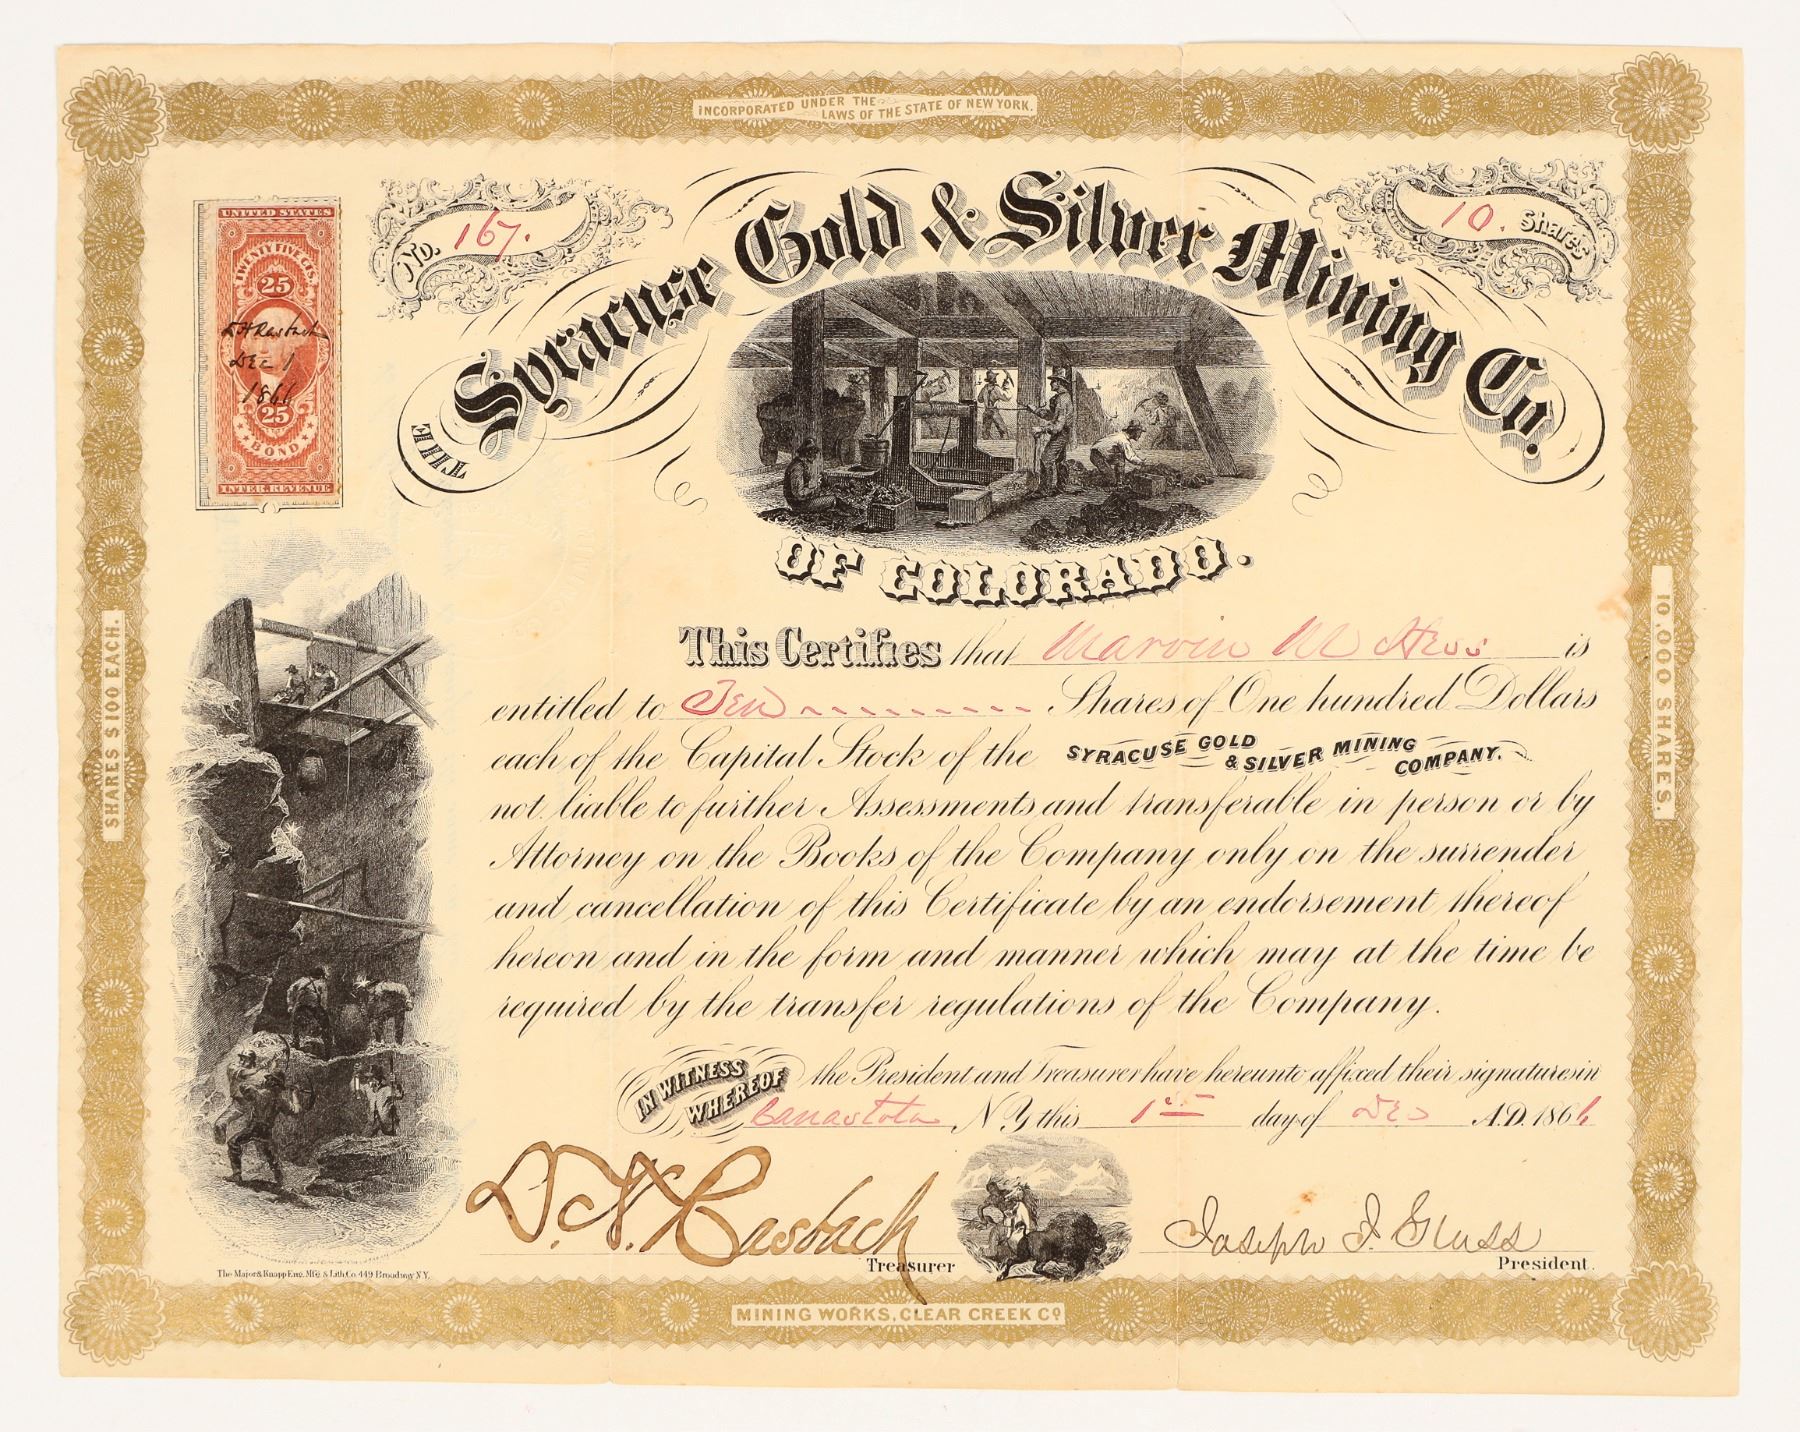 INCORPORATED UNDER THE
LAWS OF THE STATE OF NEW YORK.
No. 167.
10. Shares
UNITED STATES
TWENTY FIVE CTS.
25
Dec 1
1866
25
BOND
INTER. REVENUE
THE Syracuse Gold & Silver Mining Co.
OF COLORADO.
This Certifies that Marvin M Hess is
entitled to Ten Shares of One hundred Dollars
each of the Capital Stock of the SYRACUSE GOLD & SILVER MINING COMPANY.
not liable to further Assessments and transferable in person or by
Attorney on the Books of the Company only on the surrender
and cancellation of this Certificate by an endorsement thereof
hereon and in the form and manner which may at the time be
required by the transfer regulations of the Company.
IN WITNESS WHEREOF the President and Treasurer have hereunto affixed their signatures in
Canastota N.Y this 1st day of Dec A.D. 1866
D. H. Rasbach
Treasurer
Joseph I.
President.
The Major & Knapp Eng. Mfg. & Lith. Co. 449 Broadway N.Y.
SHARES $100 EACH.
10,000 SHARES.
MINING WORKS, CLEAR CREEK Co